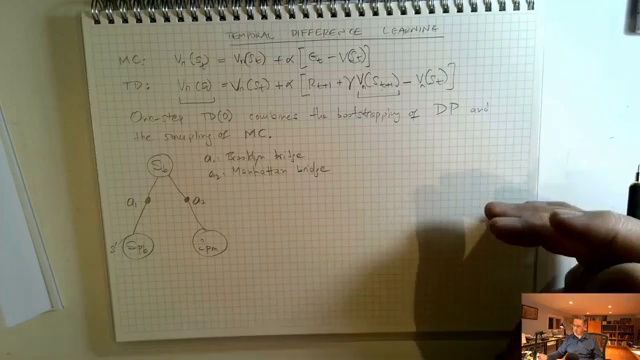 TEMPORAL DIFFERENCE LEARNING
MC: Vπ(St) = Vπ(St) + α [Gt - V(St)]
TD: Vπ(S) = Vπ(St) + α [Rt+1 + γVπ(St+1) - Vπ(St)]
One-step TD(0) combines the bootstrapping of DP and
the sampling of MC.
a1: Brooklyn bridge
a2: Manhattan bridge
Sb
a1 a2
s' Spb Spm